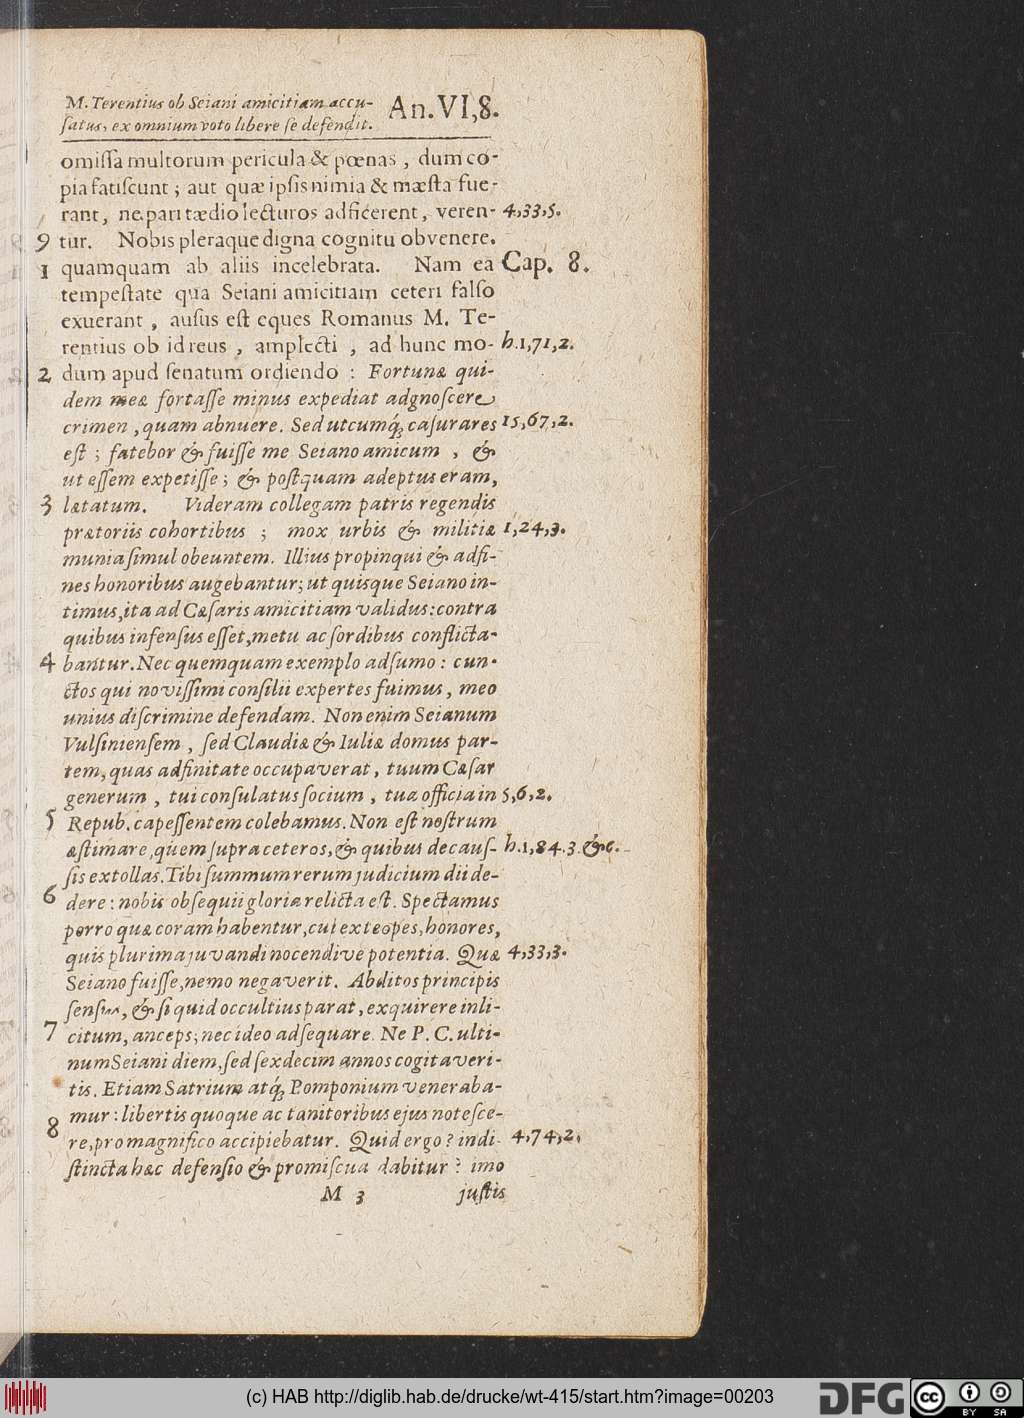 M. Terentius ob Seiani amicitiam accu-
ſatus, ex omnium voto libere ſe defendit.
An. VI, 8.
omiſſa multorum pericula & pœnas, dum co-
pia fatiſcunt; aut quæ ipſis nimia & mæſta fue-
rant, ne pari tædio lecturos adficerent, veren- 4,33,5.
9 tur. Nobis pleraque digna cognitu obvenere.
1 quamquam ab aliis incelebrata. Nam ea Cap. 8.
tempeſtate qua Seiani amicitiam ceteri falſo
exuerant, auſus eſt eques Romanus M. Te-
rentius ob id reus, amplecti, ad hunc mo- h.1,71,2.
2 dum apud ſenatum ordiendo: Fortunæ qui-
dem meæ fortaſſe minus expediat adgnoſcere
crimen, quam abnuere. Sed utcumq́; caſura res 15,67,2.
eſt; fatebor & fuiſſe me Seiano amicum, &
ut eſſem expetiſſe; & poſtquam adeptus eram,
3 lætatum. Videram collegam patris regendis
prætoriis cohortibus; mox urbis & militiæ 1,24,3.
munia ſimul obeuntem. Illius propinqui & adfi-
nes honoribus augebantur; ut quisque Seiano in-
timus, ita ad Cæſaris amicitiam validus: contra
quibus infenſus eſſet, metu ac ſordibus conflicta-
4 bantur. Nec quemquam exemplo adſumo: cun-
ctos qui noviſſimi conſilii expertes fuimus, meo
unius diſcrimine defendam. Non enim Seianum
Vulſinienſem, ſed Claudiæ & Iuliæ domus par-
tem, quas adfinitate occupaverat, tuum Cæſar
generum, tui conſulatus ſocium, tua officia in 5,6,2.
5 Repub. capeſſentem colebamus. Non eſt noſtrum
æſtimare, quem ſupra ceteros, & quibus de cauſ- h.1,84.3. &c.
ſis extollas. Tibi ſummum rerum judicium dii de-
6 dere: nobis obſequii gloria relicta eſt. Spectamus
porro quæ coram habentur, cui ex te opes, honores,
quis plurima juvandi nocendive potentia. Quæ 4,33,3.
Seiano fuiſſe, nemo negaverit. Abditos principis
ſenſus, & ſi quid occultius parat, exquirere inli-
7 citum, anceps; nec ideo adſequare. Ne P. C. ulti-
num Seiani diem, ſed ſexdecim annos cogitaveri-
tis. Etiam Satrium atq́; Pomponium veneraba-
mur: libertis quoque ac tanitoribus ejus noteſce-
8 re, pro magnifico accipiebatur. Quid ergo? indi- 4,74,2.
ſtincta hæc defenſio & promiſcua dabitur? imo
M 3 juſtis
(c) HAB http://diglib.hab.de/drucke/wt-415/start.htm?image=00203
DFG
cc BY SA